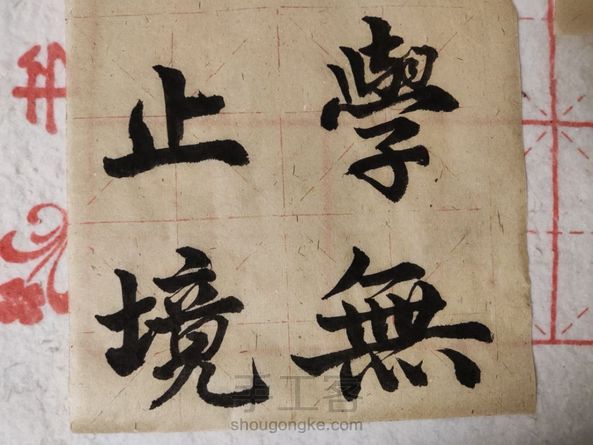 學無
止境
手工客
shougongke.com